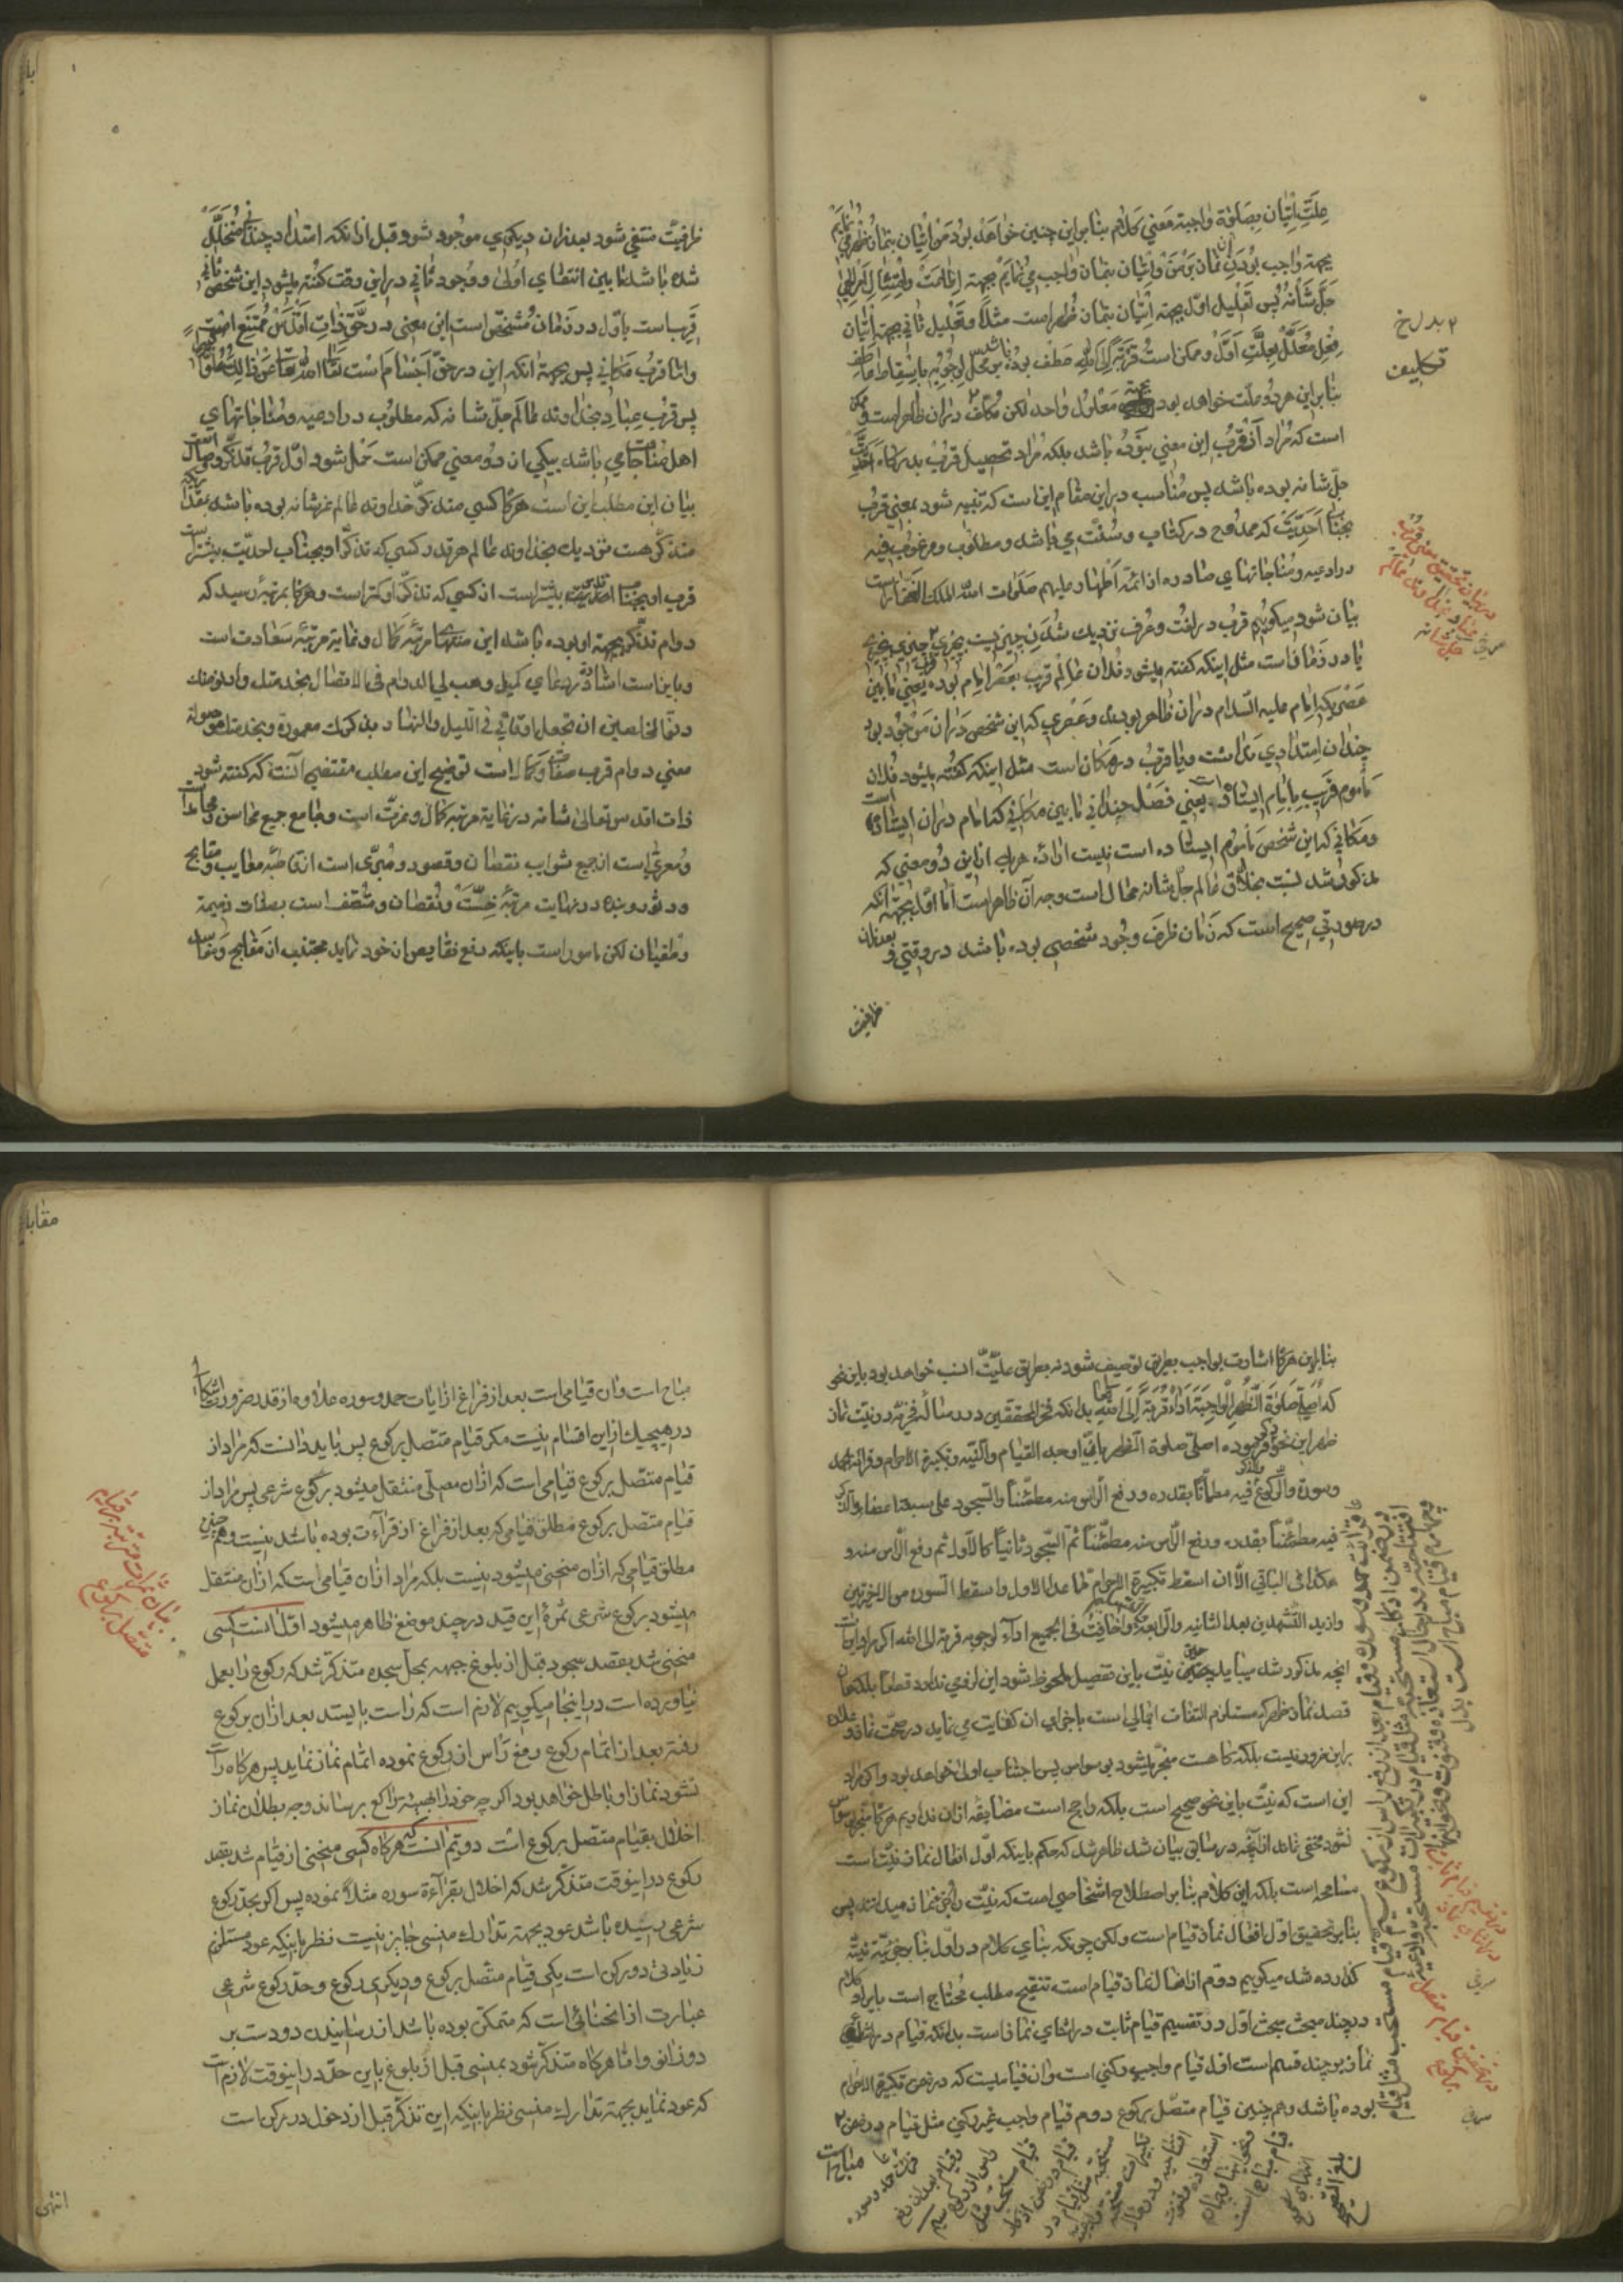 علّت اتیان بصلوة واجبة معنی کلام بنابراین چنین خواهد بود من اتیان بنماز ظهر می نمایم
بجهة واجب بودن آن نماز بر من و اتیان بنماز واجب می نمایم بجهة اطاعت و امتثال امر الهی
جلّ شانه پس تعلیل اوّل بجهة اتیان بنماز ظهر است مثلاً و تعلیل ثانی بجهة اتیان
فعل معلّل بعلّت اوّل و ممکن است قربة الی الله عطف بوده باشد بر محل لوجوبه باسقاط عاطف
بنابراین هر دو علّت خواهد بود بجهة معلول واحد لکن تکلّف در آن ظاهر است و ممکن
است که مراد از قرب این معنی نبوده باشد بلکه مراد تحصیل قرب بدرگاه احدیّت
جلّ شانه بوده باشد پس مناسب در این مقام این است که تنبیه شود بمعنی قرب
بجناب احدیّت که ممدوح در کتاب و سنّت می باشد و مطلوب و مرغوب فیه
در ادعیه و مناجاتهای صادره از ائمّه اطهار علیهم صلوات الله الملک الغفار است
بیان شود میگوییم قرب در لغت و عرف نزدیک شدن چیزیست بچیزی
یا در زمان است مثل اینکه گفته میشود فلان عالم قریب بعصر امام بوده یعنی ما بین
عصری که امام علیه السلام در آن ظاهر بودند و عصری که این شخص در آن موجود بود
چندان امتدادی نداشت و یا قرب در مکان است مثل اینکه گفته میشود فلان
مأموم قریب بامام ایستاده است یعنی فصل چندانی ما بین مکانی که امام در آن ایستاده
و مکانی که این شخص مأموم ایستاده است نیست اراده هر یک از این دو معنی که
مذکور شد نسبت بخلّاق عالم جلّ شانه محال است وجه آن ظاهر است امّا اوّل بجهة آنکه
در صورتی صحیح است که زمان ظرف وجود شخصی بوده باشد در وقتی و بعد از آن
ظرفیّت
۲ بدل خ
تکلیف
در بیان تحقیق معنی قرب
عباد بخداوند عالم
جلّ شانه
ظرفیّت منتفی شود بعد از آن دیگری موجود شود قبل از آنکه امتداد چندانی متخلّل
شده باشد ما بین انتفای اوّل و وجود ثانی در این وقت گفته میشود این شخص ثانی
قریب است باوّل در زمان و مشخّص است این معنی در حقّ ذات اقدس ممتنع است
و امّا قرب مکانی پس بجهة آنکه این در حقّ اجسام است تعالی الله عن ذلک علوّاً
پس قرب عباد بخداوند عالم جلّ شانه که مطلوب در ادعیه و مناجاتهای
اهل مناجات می باشد بیکی از دو معنی ممکن است حمل شود اوّل قرب تذکّر و
بیان این مطلب این است هرگاه کسی متذکّر خداوند عالم عزّ شانه بوده باشد بقدر
متذکّر هست نزدیک بخداوند عالم هر قدر کسی که تذکّر او بجناب احدیّت بیشتر است
قرب او بجناب احدیّت بیشتر است از کسی که تذکّر او کمتر است و هرگاه بمرتبه رسید که
دوام تذکّر بجهة او بوده باشد این منتهای مرتبه کمال و نهایة مرتبه سعادت است
و باین است اشاره در دعای کمیل و هب لی الدوام فی الاتصال بخدمتک
ان تجعل اوقاتی فی اللیل والنهار بذکرک معمورة و بخدمتک موصولة
معنی دوم قرب صفات و کمال است توضیح این مطلب مقتضی آنست که گفته شود
ذات اقدس تعالی شانه در نهایة مرتبه کمال و عزّت است و جامع جمیع محاسن و
و معرّی است از جمیع شوایب نقصان و قصور و مبرّی است از قاطبه معایب و قبایح
و بنده در نهایت مرتبه خسّت و نقصان و متّصف است بصفات ذمیمة
و طغیان لکن مامور است باینکه دفع نقایص از خود نماید مجتنب از مقابح و
بنابراین هرگاه اشارت بواجب بطریق توصیف شود نه بطریق علیّت انسب خواهد بود باین نحو
که اصلّی صلوة الظهر الواجبة اداءً قربة الی الله تعالی بدانکه فخر المحققین در رساله فخریّه در نیّت نماز
ظهر این نحو ذکر فرموده اصلّی صلوة الظهر بان اوجد القیام والنیّة و تکبیرة الاحرام و قرائة الحمد
و سورة والرکوع فیه مطمئناً بقدره و رفع الراس منه مطمئناً والسجود علی سبعة اعضاء والذکر
فیه مطمئناً بقدره و رفع الراس منه مطمئناً ثمّ السجود ثانیاً کالاول ثم رفع الراس منه و
هکذا فی الباقی الّا ان اسقط تکبیرة الاحرام فیما عدا الاول و اسقط السورة من الاخیرتین
و ازید التشهدین بعد الثانیة والرابعة واخافت فی الجمیع اداءً لوجوبه قربة الی الله اگر مراد
آنچه مذکور شد میباید در حین نیّت باین تفصیل ملحوظ شود این لزومی ندارد قطعاً بلکه همان
قصد نماز ظهر که مستلزم التفات اجمالی است باجزای آن کفایت می نماید در صحّت نماز و علاوه
بر این ضرور نیست بلکه گاهست منجر میشود بوسواس پس اجتناب اولی خواهد بود و اگر مراد
این است که نیّت باین نحو صحیح است بلکه راجح است مضایقه از آن نداریم هرگاه منجر بوسواس
نشود مخفی نماند از آنچه در سابق بیان شد ظاهر شد که حکم باینکه اوّل افعال نماز نیّت است
مسامحه است بلکه این کلام بنابر اصطلاح اشخاصی است که نیّت را جزء نماز میدانند پس
بنابر تحقیق اوّل افعال نماز قیام است ولکن چونکه بنای کلام در اوّل بنا بر جزئیّة نیّة
گذارده شد میگوییم دوّم از افعال نماز قیام است تنقیح مطلب محتاج است بایراد کلام
در چند مبحث مبحث اوّل در تقسیم قیام ثابت در اثنای نماز است بدانکه قیام در اثنای
نماز بر چند قسم است اوّل قیام واجب رکنی است و آن قیامیست که در ضمن تکبیرة الاحرام
بوده باشد و همچنین قیام متّصل برکوع دوم قیام واجب غیر رکنی مثل قیام در ضمن ۲
مباح است
قرائت حمد و سوره و قیام بعد از رفع راس از رکوع سیم قیام مستحب مثل قیام
در ضمن اذکار مستحبّة مثل قیام در تکبیرات مستحبّة و ادعیه
افتتاحیّه و در حال استعاذه و قنوت و نحو اینها
چهارم قیام مباح است بدل
در تقسیم قیام ثابت
در اثنای نماز
در تحقیق قیام متصل
برکوع
قرائت حمد و سوره
و قیام بعد از رفع
راس از رکوع سیم
قیام مستحب مثل
قیام در ضمن اذکار
مستحبّة مثل قیام در
تکبیرات مستحبّة
افتتاحیّه و در حال
استعاذه و قنوت
و نحو اینها چهارم
قیام مباح است
بلغ التصحیح
مقابله
مباح است و آن قیامی است بعد از فراغ از ایات حمد و سوره علاوه از قدر ضرور اشکال
در هیچیک از این اقسام نیست مگر قیام متصل برکوع پس باید دانست که مراد از
قیام متصل برکوع قیامی است که از آن مصلّی منتقل میشود برکوع شرعی پس مراد از
قیام متصل برکوع مطلق قیامی که بعد از فراغ از قراءت بوده باشد نیست و همچنین
مطلق قیامی که از آن منحنی میشود نیست بلکه مراد از آن قیامی است که از آن منتقل
میشود برکوع شرعی ثمره این قید در چند موضع ظاهر میشود اوّل آنست کسی
منحنی شد بقصد سجود قبل از بلوغ جبهه بمحلّ سجده متذکّر شد که رکوع را بعمل
نیاورده است در اینجا میگوییم لازم است که راست بایستد بعد از آن برکوع
رفته بعد از اتمام رکوع رفع راس از رکوع نموده اتمام نماز نماید پس هرگاه راست
نشود نماز او باطل خواهد بود اگر چه خود را بهیئت راکع برساند وجه بطلان نماز
اخلال بقیام متصل برکوع است دویّم آنست که هرگاه کسی منحنی از قیام شد بقصد
رکوع در اینوقت متذکّر شد که اخلال بقراءة سوره مثلاً نموده پس اگر بحدّ رکوع
شرعی رسیده باشد عود بجهة تدارک منسی جایز نیست نظر باینکه عود مستلزم
زیادتی دو رکن است یکی قیام متصل برکوع و دیگری رکوع و حدّ رکوع شرعی
عبارت از انحنائی است که متمکّن بوده باشد از رسانیدن دو دست بر
دو زانو و امّا هرگاه متذکّر شود بمنسی قبل از بلوغ باین حدّ در اینوقت لازم است
که عود نماید بجهة تدارک منسی نظر باینکه این تذکّر قبل از دخول در رکن است
بیان ثمرات مترتبه بر قیام
متصل برکوع
انتهی